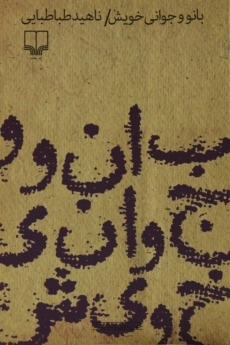 بانو و جوانی خویش/ ناهید طباطبایی
ب ان و و
ج وان ی
خ وی ش